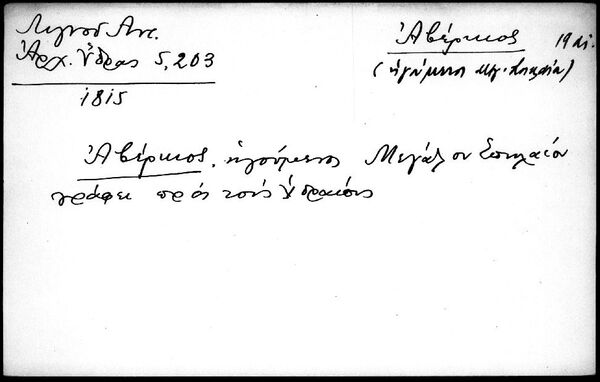 Λιγνοῦ Ἀντ.
Ἀρχ. Ὕδρας 5, 203
1815
Ἀβέρκιος 19 αἰ.
(ἡγούμενος Μεγ. Σπηλαίου)
Ἀβέρκιος, ἡγούμενος Μεγάλου Σπηλαίου
γράφει πρὸς τοὺς Ὑδραίους